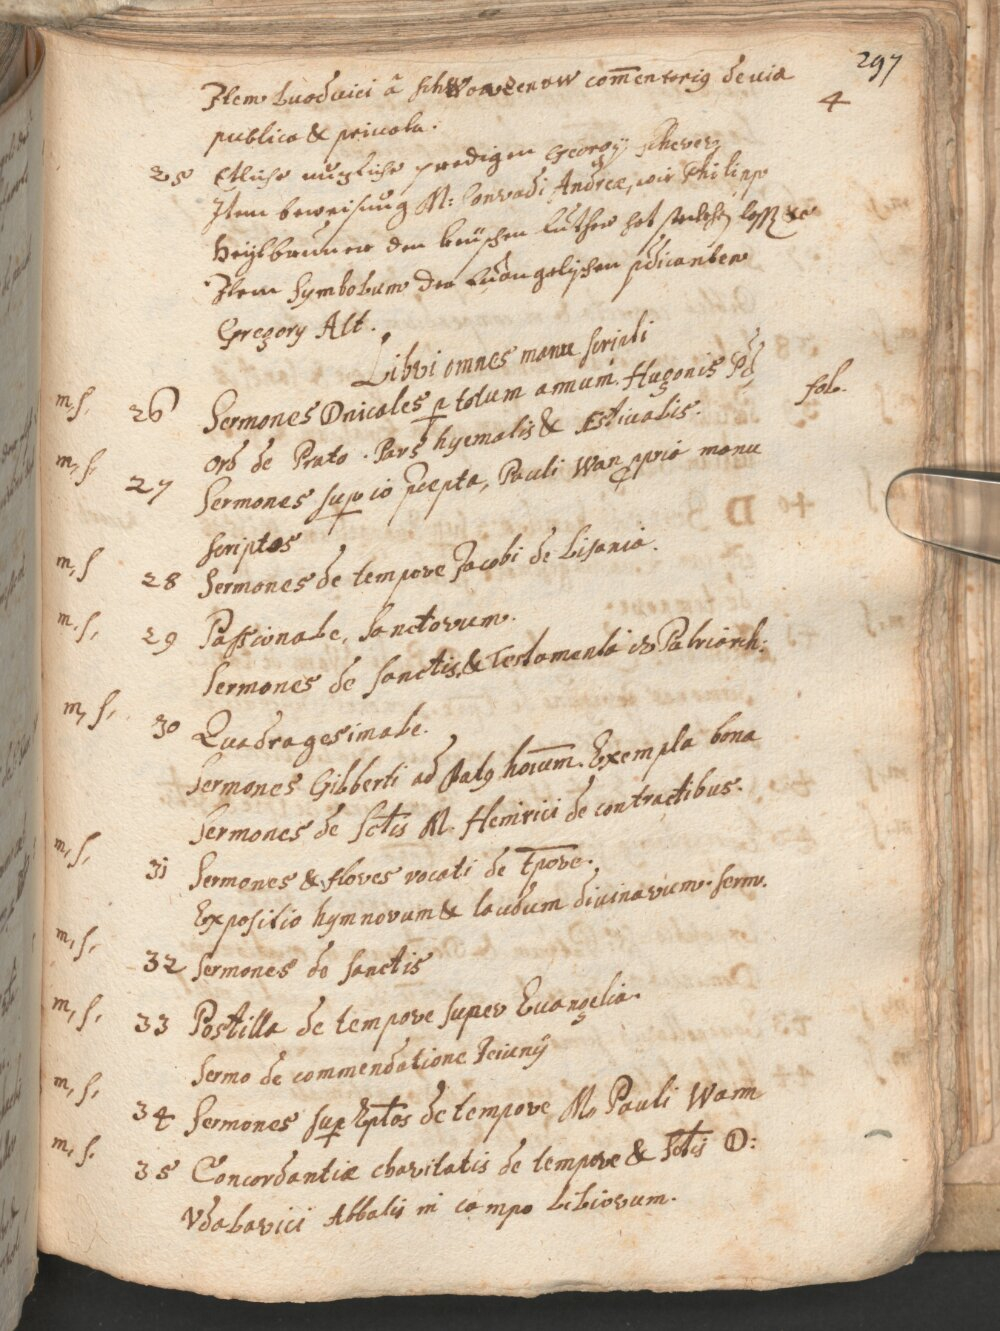 297
Item Luodvici â Schworzenow com̄entorig de via
4
publica & privata.
25 Etliche nuzliche predigen Georgij Scherer,
Item beweisung M: Conradi Andreæ, wie Philipp
Heijlbrunner den keuschen Luther hat
Item Symbolum der Euangelischen pdicanten
Gregory Alt.
Libri omnes manu scripti
m, s, 26 Sermones Dnicales p totum annum. Hugonis Pd fol.
Ord de Prato. Pars hyemalis & Æstivalis.
m, s. 27 Sermones sup io pcepta, Pauli Wan ppriâ manu
scriptos
m, s 28 Sermones de tempore Jacobi de Lisania.
m. s, 29 Passionale, Sanctorum.
Sermones de sanctis, & Testamenta iz Patriarch:
m, s, 30 Quadragesimale.
Sermones Gilberti ad horum. Exempla bona
Sermones de Sctis M. Heinrici de contractibus.
m, s, 31 Sermones & flores vocati de Tpore.
Expositio hymnorum & laudum divinarum. serm.
m, s, 32 Sermones de sanctis
m, s, 33 Postilla de tempore super Euangelia.
Sermo de commendatione Jeiunij
m, s, 34 Sermones sup Eptos de tempore M, Pauli Wann
m, s. 35 Concordantiæ charitatis de tempore & Sctis D:
Vdalarici Abbatis in campo Liliorum.